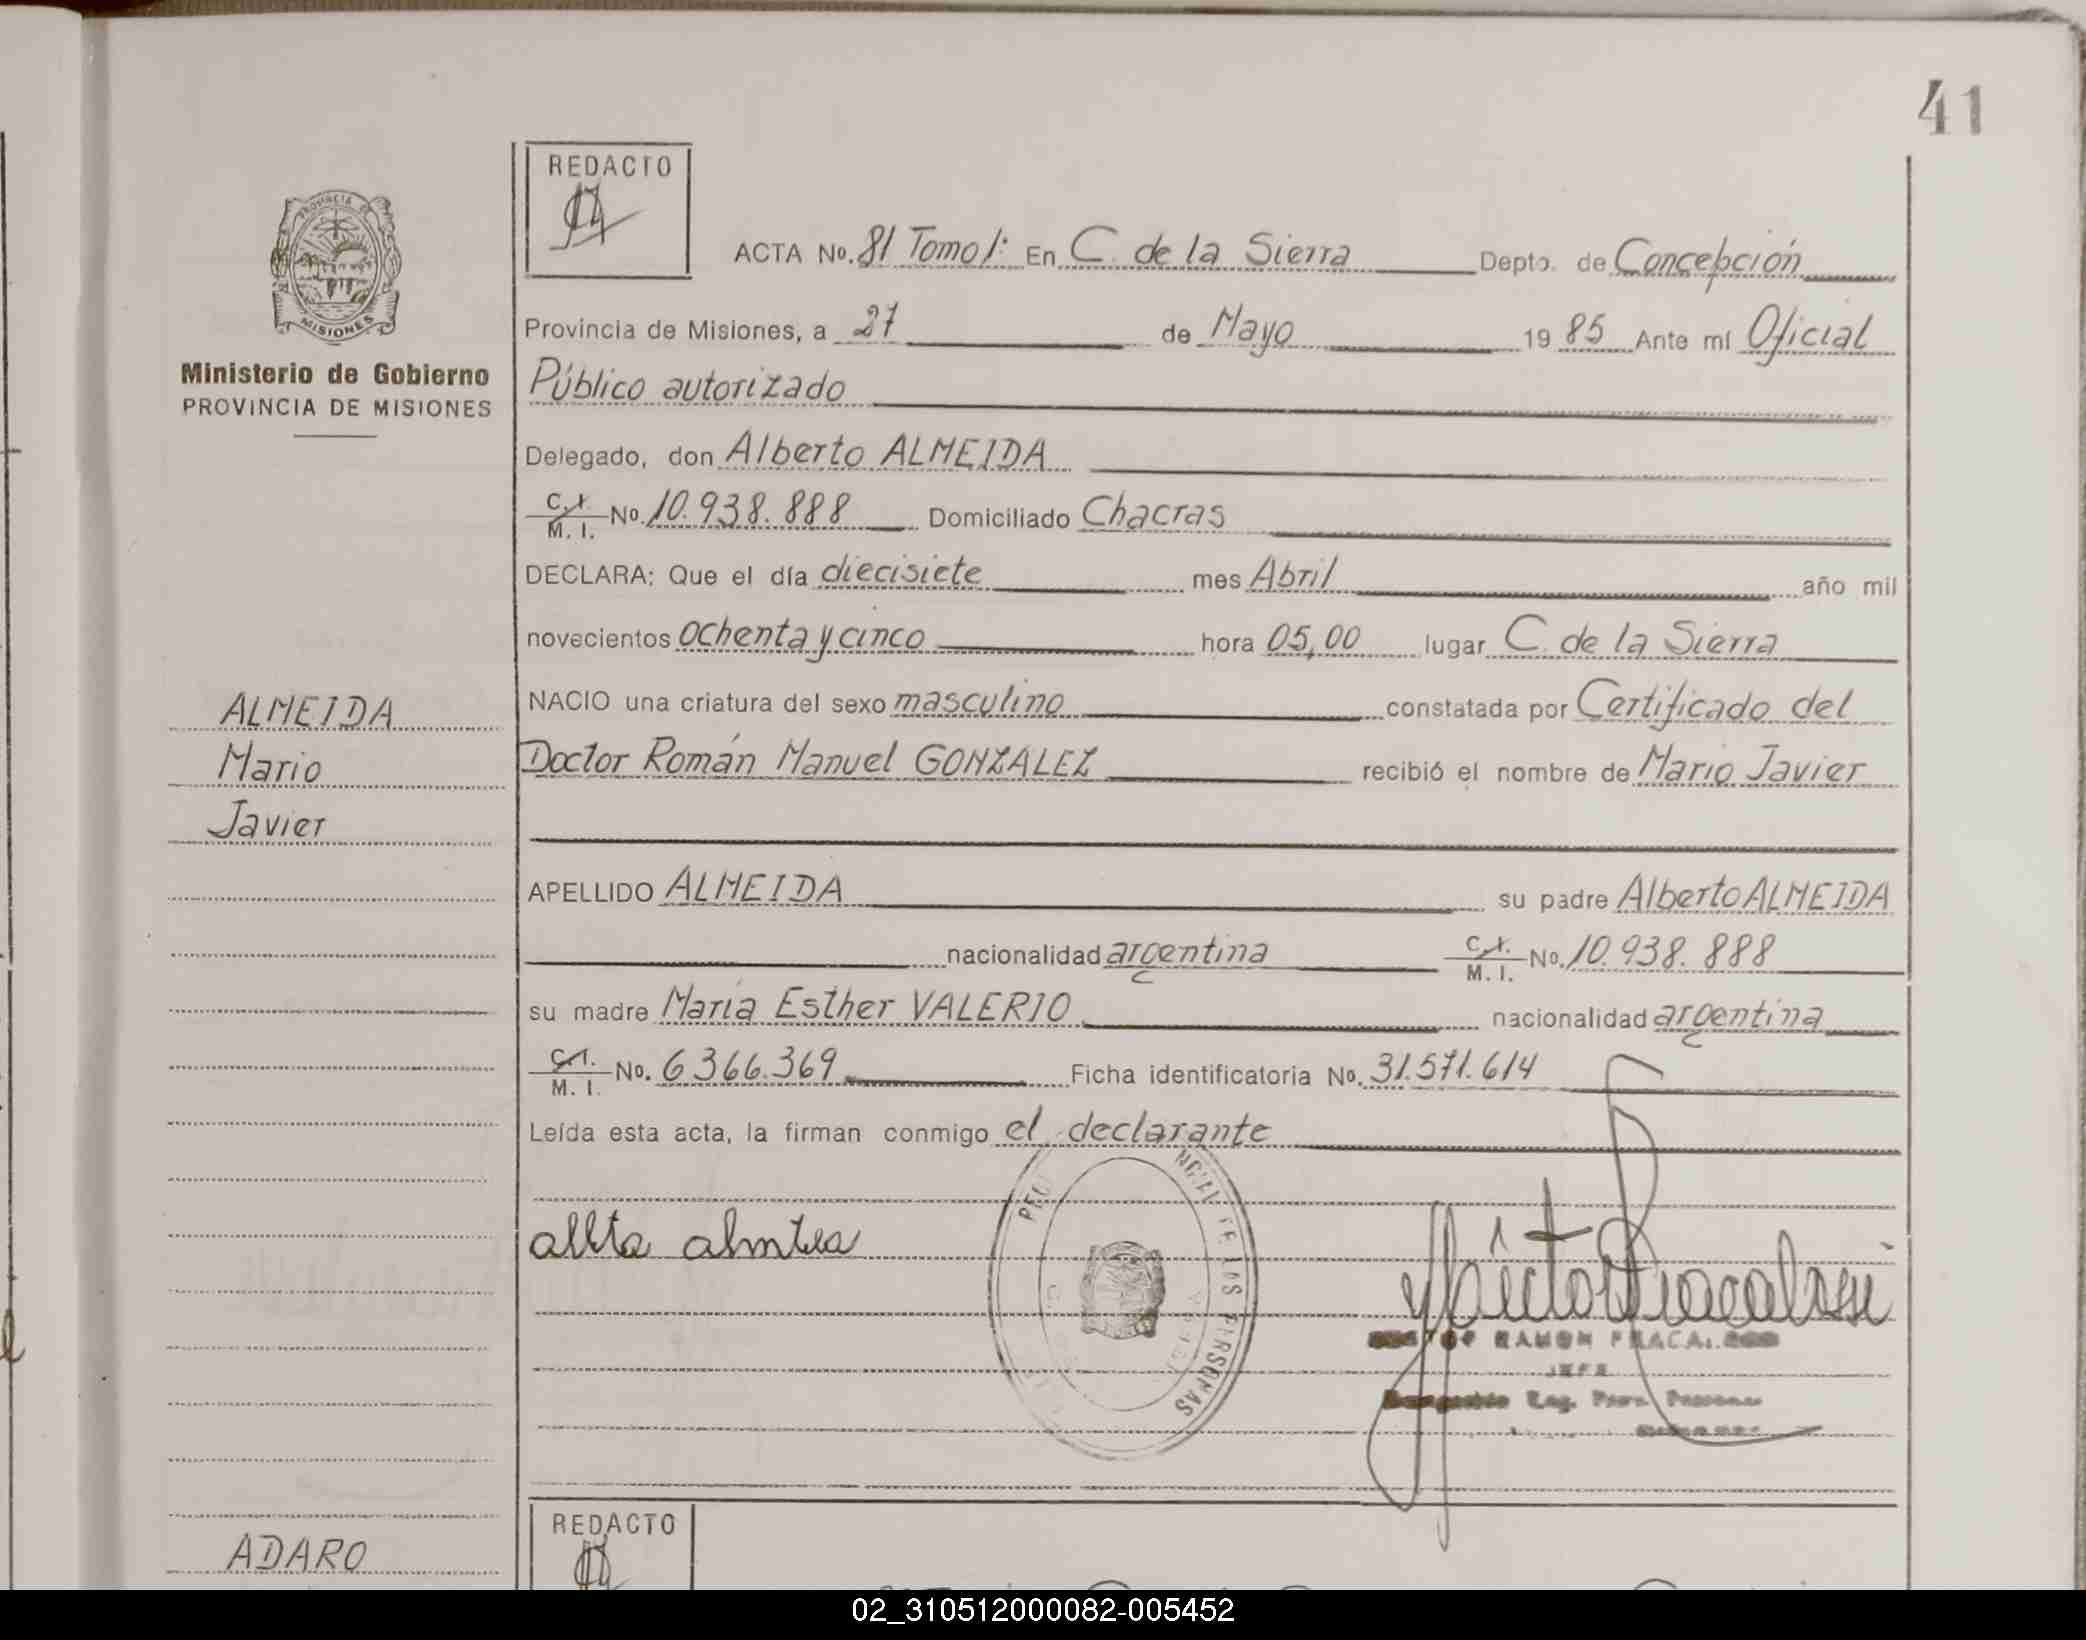 41
REDACTO
ACTA No. 81 Tomo 1: En C. de la Sierra Depto. de Concepción
PROVINCIA DE
MISIONES
Provincia de Misiones, a 27 de Mayo 1985 Ante mí Oficial
Ministerio de Gobierno
PROVINCIA DE MISIONES
Público autorizado
Delegado, don Alberto ALMEIDA
C.I. M. I. No. 10.938.888 Domiciliado Chacras
DECLARA: Que el día diecisiete mes Abril año mil
novecientos ochenta y cinco hora 05,00 lugar C. de la Sierra
NACIO una criatura del sexo masculino constatada por Certificado del
Doctor Román Manuel GONZALEZ recibió el nombre de Mario Javier
ALMEIDA
Mario
Javier
APELLIDO ALMEIDA su padre Alberto ALMEIDA
nacionalidad argentina C.I. M. I. No. 10.938.888
su madre María Esther VALERIO nacionalidad argentina
C.I. M. I. No. 6366.369 Ficha identificatoria No. 31.571.614
Leída esta acta, la firman conmigo el declarante
DE LAS PERSONAS
RAMON
JEFE
REDACTO
ADARO
02_310512000082-005452